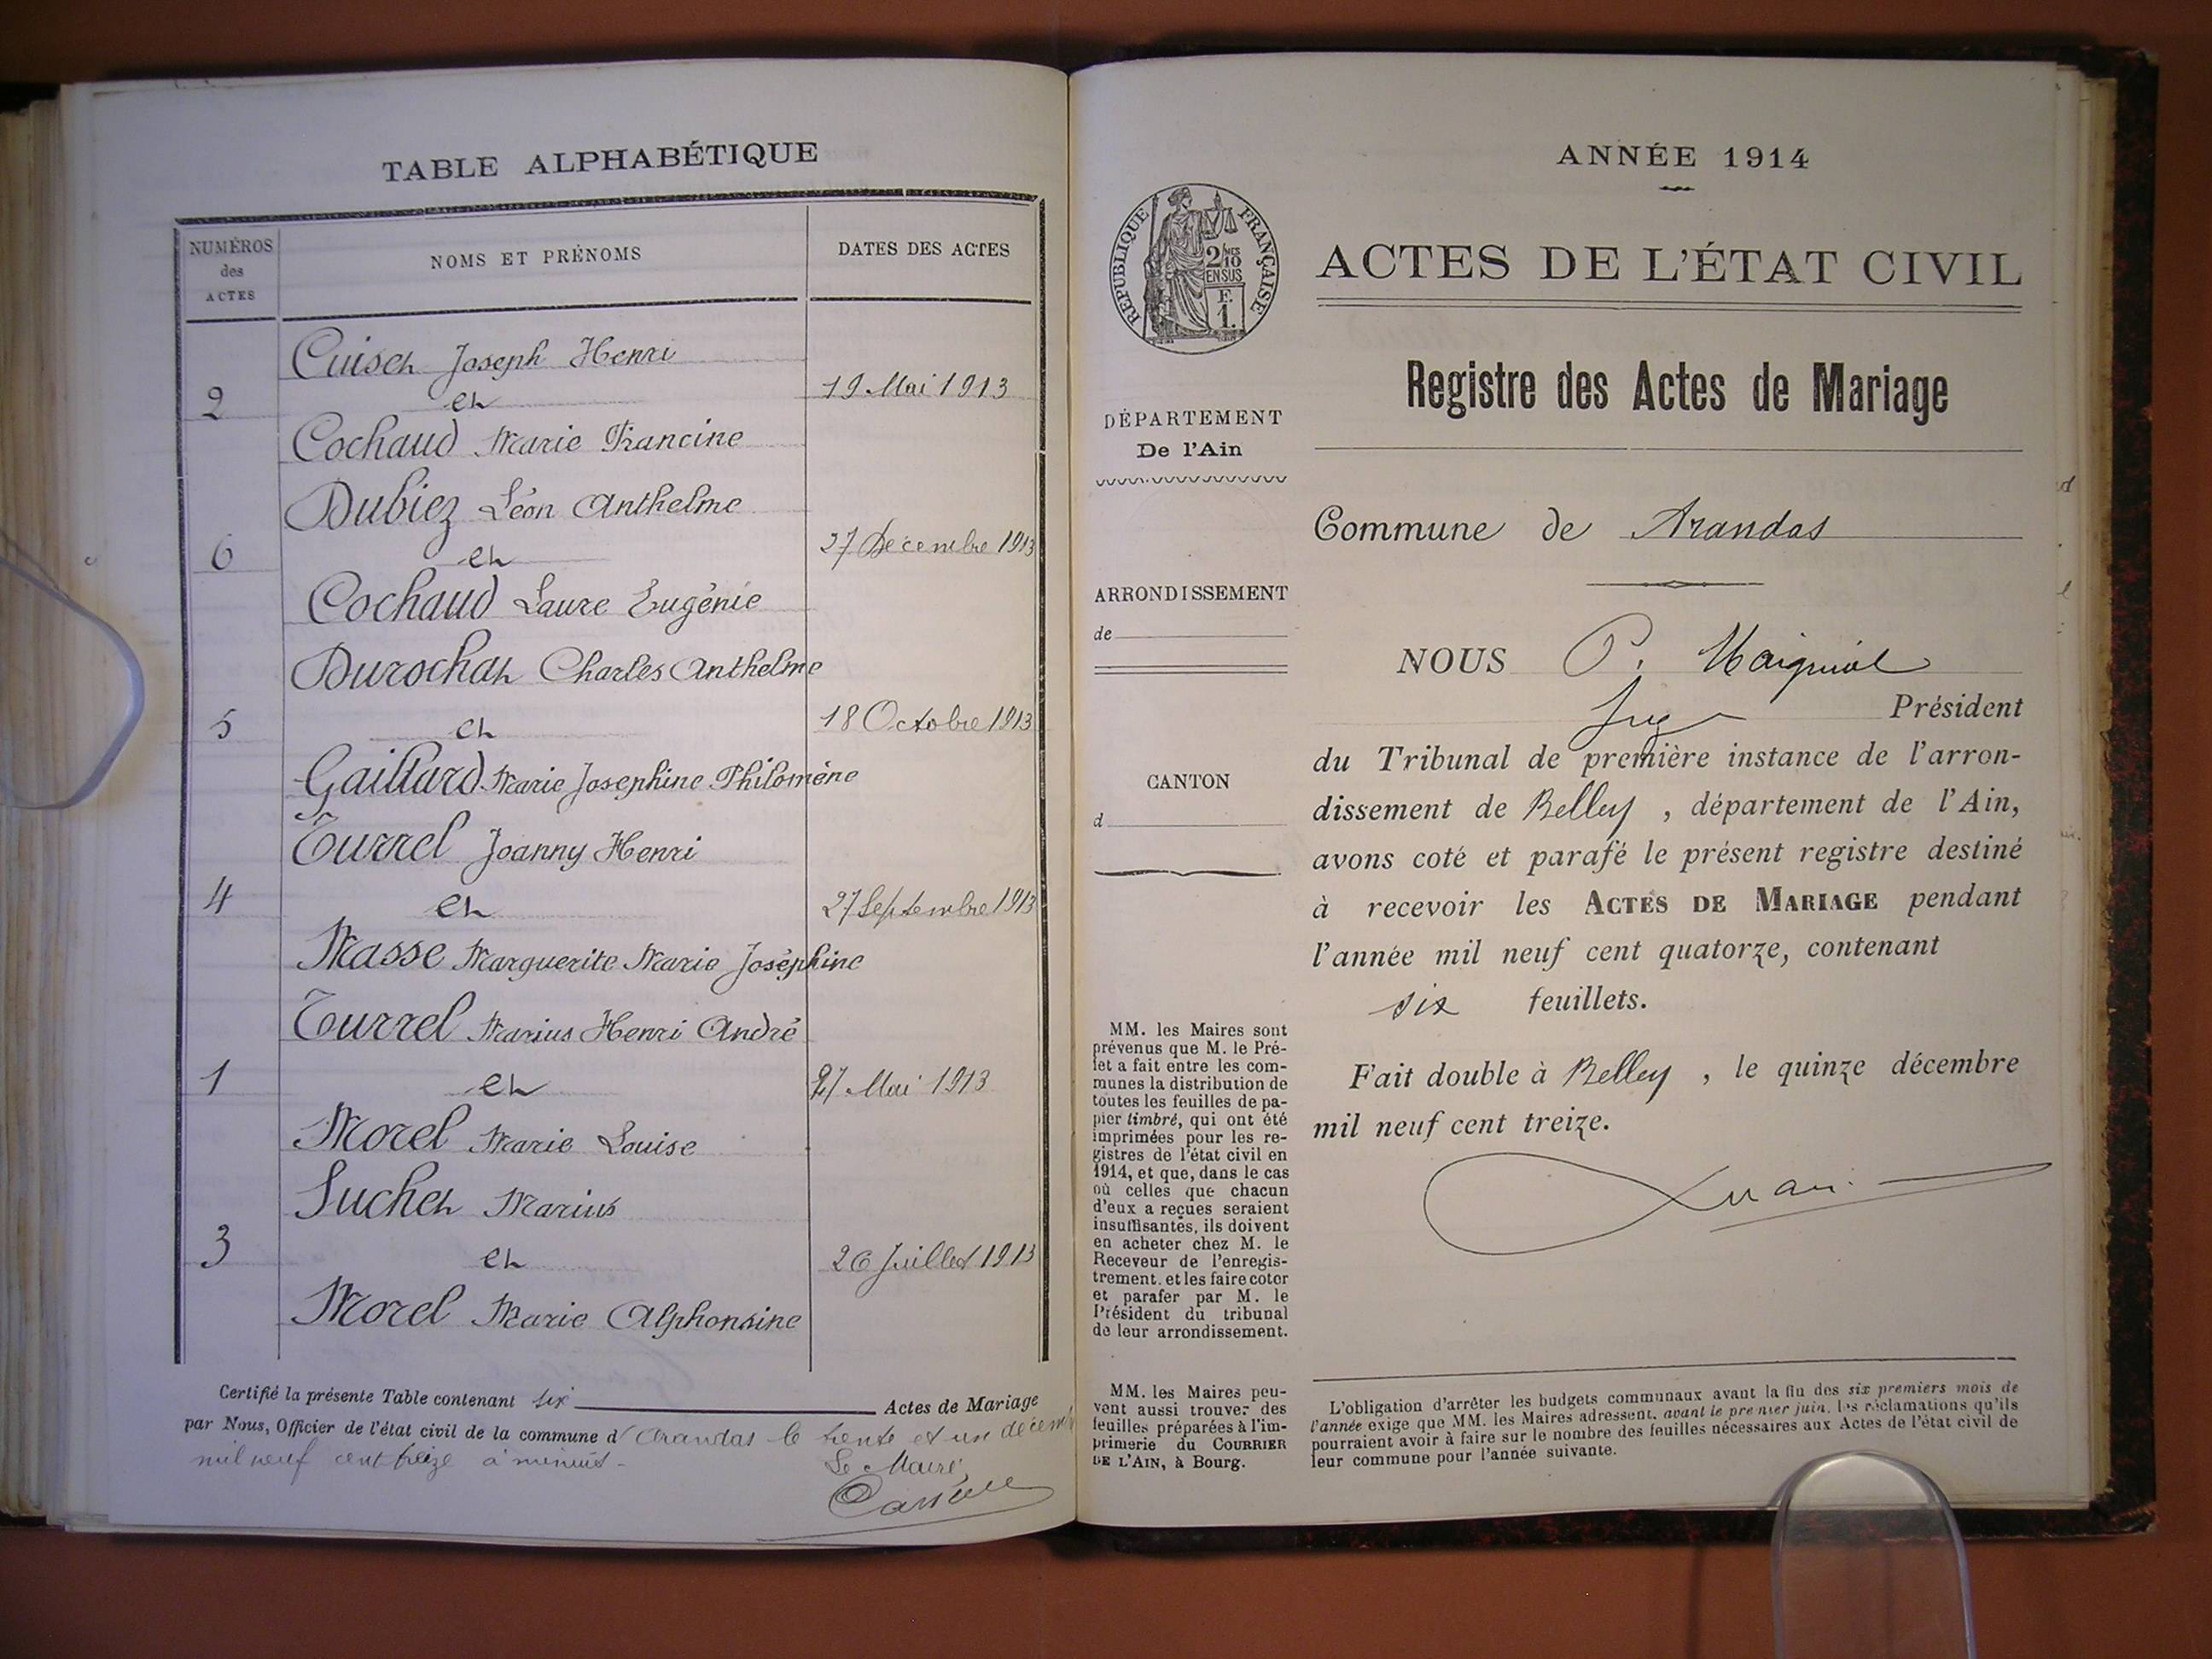 TABLE ALPHABÉTIQUE
NUMÉROS
des
ACTES
NOMS ET PRÉNOMS
DATES DES ACTES
Cuiset Joseph Henri
2 et 19 Mai 1913
Cochaud Marie Francine
Dubiez Léon Anthelme
6 et 27 Décembre 1913
Cochaud Laure Eugénie
Durochat Charles Anthelme
5 et 18 Octobre 1913
Gaillard Marie Josephine Philomène
Turrel Joanny Henri
4 et 27 Septembre 1913
Masse Marguerite Marie Joséphine
Tourrel Marius Henri André
1 et 27 Mai 1913
Morel Marie Louise
Suchet Marius
3 et 26 Juillet 1913
Morel Marie Alphonsine
Certifié la présente Table contenant six Actes de Mariage
par Nous, Officier de l'état civil de la commune d'Arandas le trente et un décembre
mil neuf cent treize à minuit
Le Maire,
ANNÉE 1914
RÉPUBLIQUE FRANÇAISE
2/10MES
EN SUS
F.
1.
ACTES DE L'ÉTAT CIVIL
Registre des Actes de Mariage
DÉPARTEMENT
De l'Ain
Commune de Arandas
ARRONDISSEMENT
de
CANTON
d
NOUS P.
Juge Président
du Tribunal de première instance de l'arron-
dissement de Belley, département de l'Ain,
avons coté et parafé le présent registre destiné
à recevoir les ACTES DE MARIAGE pendant
l'année mil neuf cent quatorze, contenant
six feuillets.
Fait double à Belley, le quinze décembre
mil neuf cent treize.
MM. les Maires sont
prévenus que M. le Pré-
fet a fait entre les com-
munes la distribution de
toutes les feuilles de pa-
pier timbré, qui ont été
imprimées pour les re-
gistres de l'état civil en
1914, et que, dans le cas
où celles que chacun
d'eux a reçues seraient
insuffisantes, ils doivent
en acheter chez M. le
Receveur de l'enregis-
trement. et les faire coter
et parafer par M. le
Président du tribunal
de leur arrondissement.
MM. les Maires peu-
vent aussi trouver des
feuilles préparées à l'im-
primerie du COURRIER
DE L'AIN, à Bourg.
L'obligation d'arrêter les budgets communaux avant la fin des six premiers mois de
l'année exige que MM. les Maires adressent, avant le premier juin, les réclamations qu'ils
pourraient avoir à faire sur le nombre des feuilles nécessaires aux Actes de l'état civil de
leur commune pour l'année suivante.